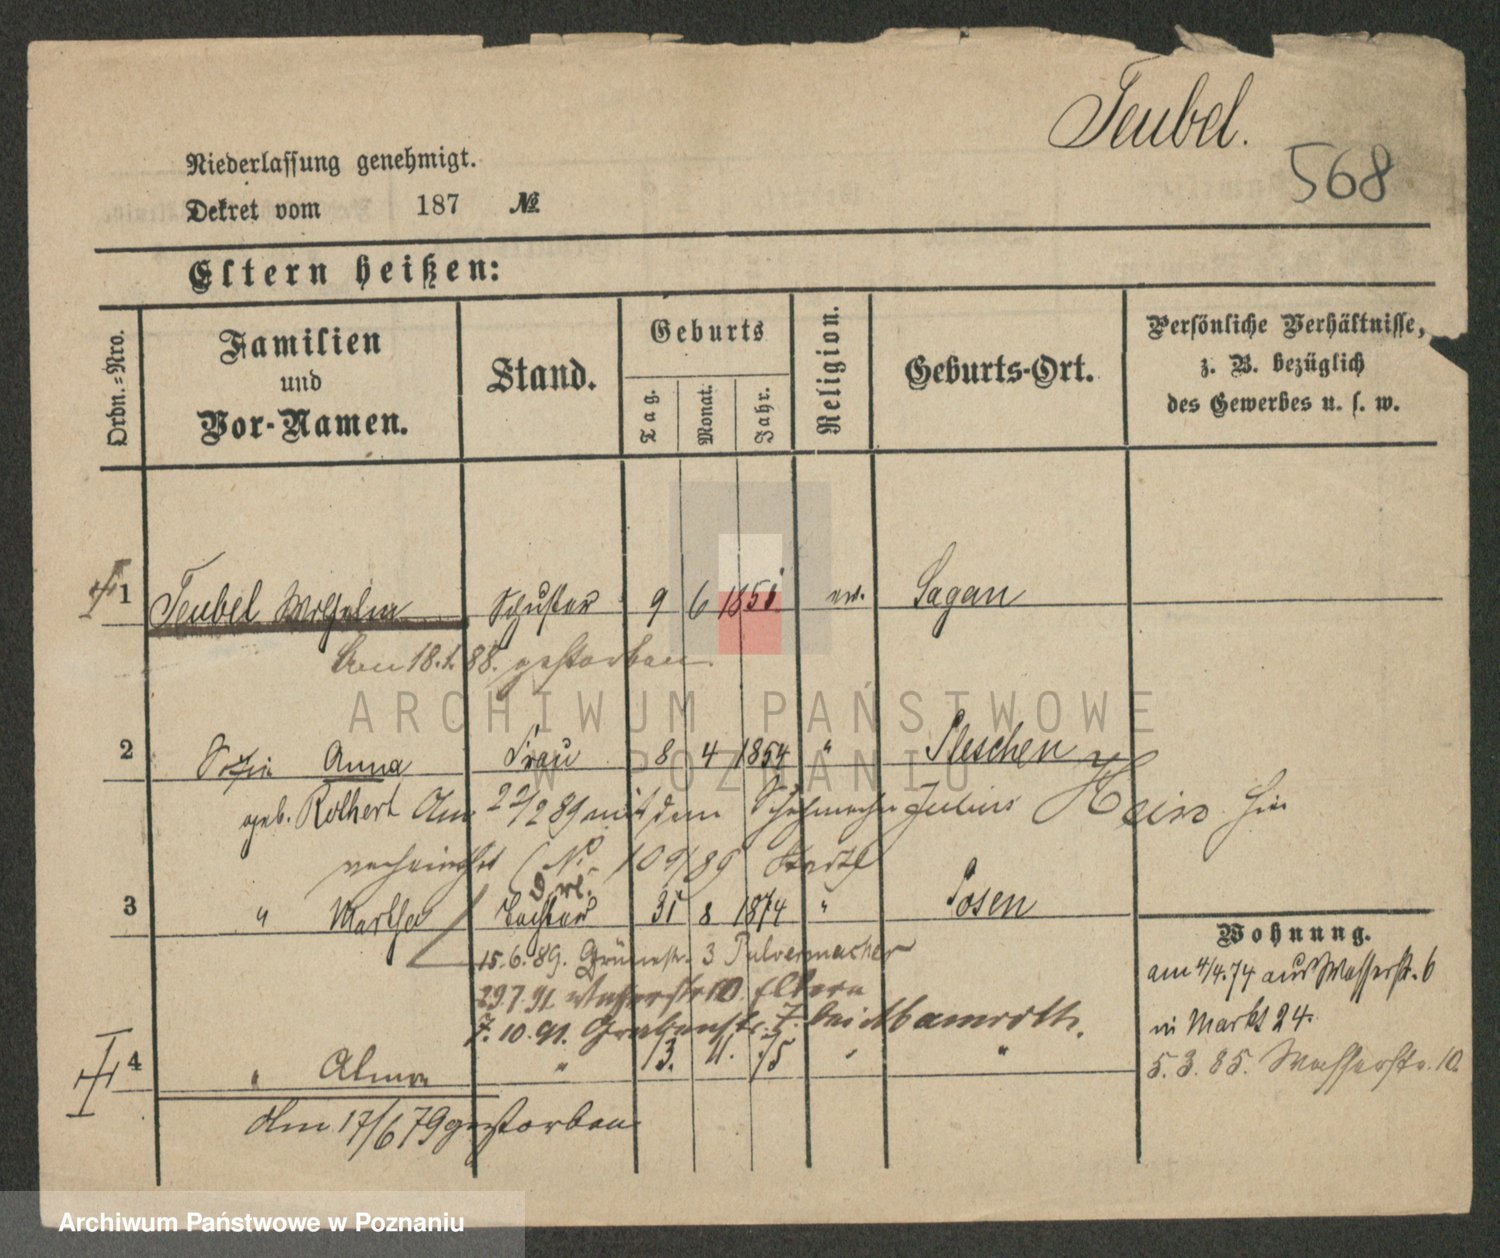 Teubel.
568
Niederlassung genehmigt.
Dekret vom 187 №
Eltern heißen:
Ordn.=Nro.
Familien
und
Vor-Namen.
Stand.
Geburts
Tag.
Monat.
Jahr.
Religion.
Geburts-Ort.
Persönliche Verhältnisse,
z. B. bezüglich
des Gewerbes u. s. w.
1 Teubel Wilhelm Schuster 9 6 1851 ev. Sagan
den 18.1.88. gestorben.
2 Anna Frau 8 4 1854 " Pleschen
geb. Rothert Am 22/2 89 mit dem Schuhmacher Julius Heinz hier
verheirathet (No 109/89 Stadt)
3 " Martha Tochter 31 8 1874 " Posen
15.6.89. Grünestr. 3 Pulvermacher
29.7.91. Wasserstr 10. Eltern
7.10.91. Grabenstr. 7. bei Mamroth.
4 " Alma " 13. 11. 75 " "
Am 17/6 79 gestorben
Wohnung.
am 4/4.74 aus Wasserstr. 6
in Markt 24.
5.3.85. Wasserstr. 10.
ARCHIWUM PAŃSTWOWE
W POZNANIU
Archiwum Państwowe w Poznaniu